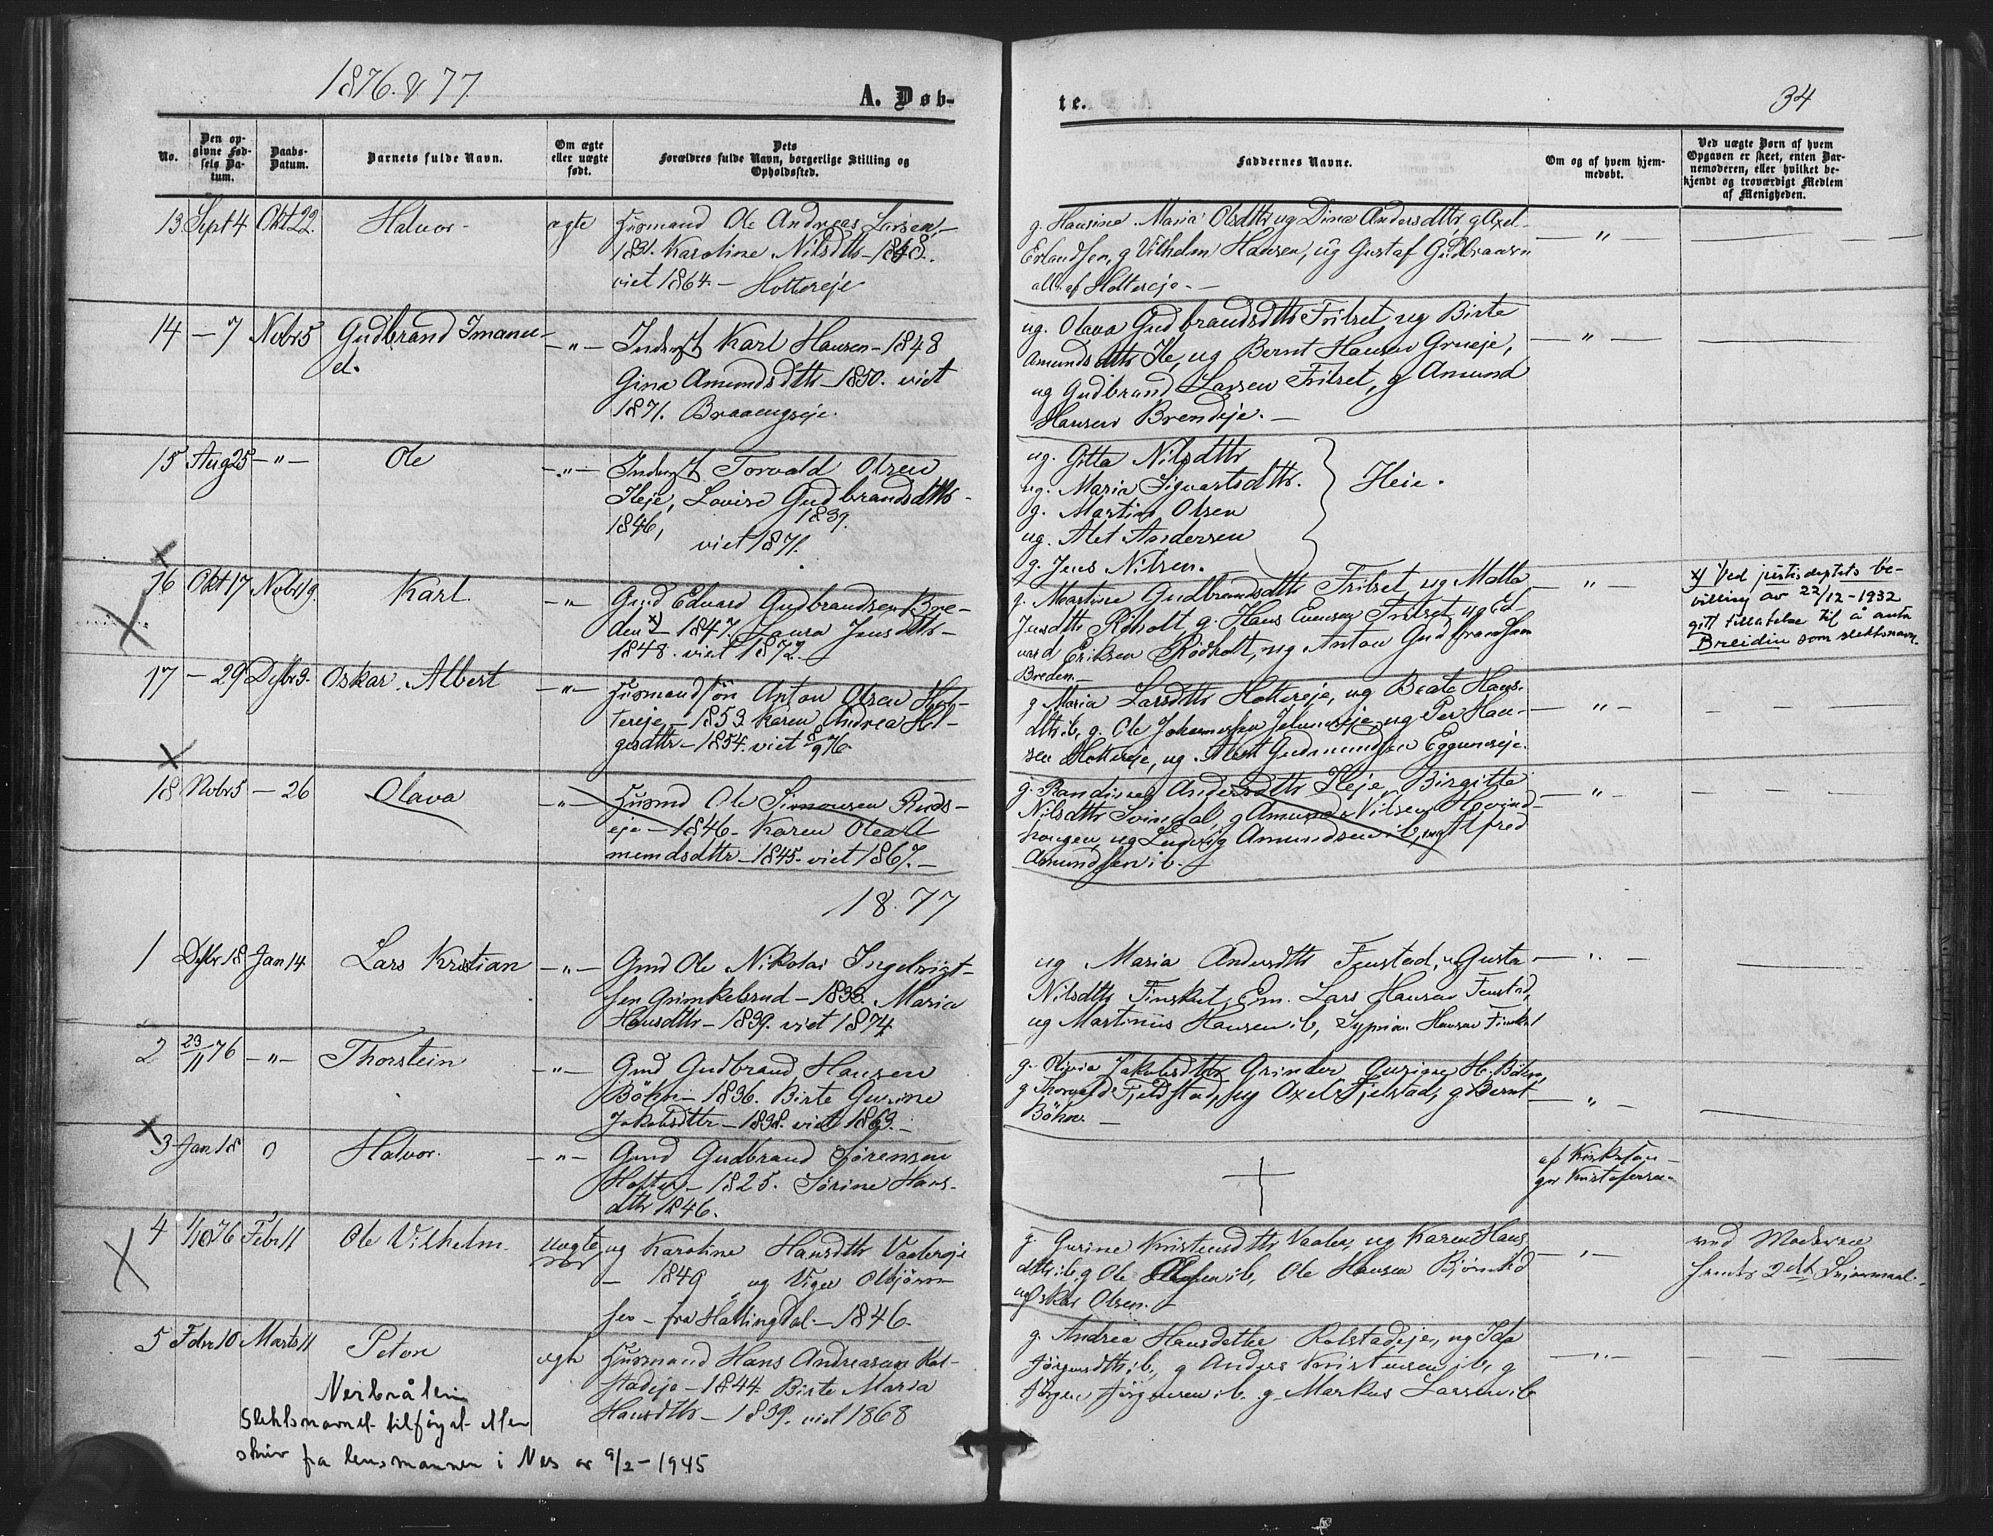 1876 & 77
A. Døb-
te.
34
No.
Den op-
givne Fød-
sels Da-
tum.
Daabs-
Datum.
Barnets fulde Navn.
Om ægte
eller uægte
født.
Dets
Forældres fulde Navn, borgerlige Stilling og
Opholdssted.
Faddernes Navne.
Om og af hvem hjem-
medøbt.
Ved uægte Børn af hvem
Opgaven er skeet, enten Bar-
nemoderen, eller hvilket be-
kjendt og troværdigt Medlem
af Menigheden.
13 Sept 4 Okt 22. Halvor - ægte Husmand Ole Andreas Larsen,
Karoline Nilsdttr - 1848.
viet 1864 - Holtereje
g. Hansine Maria Olsdttr ug Dina Andersdttr, g Axel
Erlandsen, g Vilhelm Hansen, ug Gustaf Gudbransen
alle af Holtereje -
14 - 7 Novbr 5 Gudbrand Imanu-
el. - " - Inderst Karl Hansen - 1848
Gina Amundsdttr - 1850. viet
1871. Braaengseje.
ug. Olava Gudbrandsdttr Fritset ug Birte
Amundsdttr Ile, ug Bernt Hansen Grueje,
ug Gudbrand Larsen Fritset, g Amund
Hansen Brendeje. - - " -
15 Aug 25 - " - Ole - " - Inderst Torvald Olsen
Heje, Lovise Gudbrandsdttr -
1846, 1839.
viet 1871.
ug. Gitta Nilsdttr
ug. Maria Sigvartsdttr. Heie.
g. Martin Olsen
ug. Alet Andersen
g. Jens Nilsen.
16 Okt 17 Novbr 19. Karl. - " - Gmd Edvard Gudbrandsen Bre-
den x) - 1847. Laura Jensdttr -
1848. viet 1872.
g. Martine Gudbrandsdttr Fritset ug Malla
Jensdttr Röholt, g. Hans Evensen Fritset, ug Ed-
vard Eriksen Rödholt, ug Anton Gudbrandsen
Breden. - - " -
x) Ved justisdeptets be-
villing av 22/12-1932
gitt tillatelse til å anta
Breidin som slektsnavn.
17 - 29 Dcbr 3. Oskar Albert - " - Husmandssön Anton Olsen Hol-
tereje - 1853 Karen Andrea Hel-
gesdttr - 1854. viet 8/9 76.
g Maria Larsdttr Holtereje, ug Beate Hans-
dttr ib, g. Ole Johannesen ug Per Han-
sen Holtereje, ug. Albert Gudmundsen Eggumseje. - " -
18 Novbr 5 - 26 Olava - " - Husmd Ole Simonsen Ruds-
eje - 1846 - Karen Olea
mundsdttr - 1845. viet 1867. -
g. Randi ug Andersdttr Heje, Birgitte
Nilsdttr Svindal, g Amund Nilsen Hovind-
haugen, ug Ludvig Amundsen ib, ug Alfred
Amundsen ib. - - " -
1877
1 Dcbr 18 Jan 14 Lars Kristian - " - Gmd Ole Nikolai Ingebrigt-
sen Grimkelsrud - 1833. Maria
Hansdttr - 1839. viet 1874.
ug Maria Andersdttr Fenstad, ug Gusta
Nilsdttr Em. Lars Hansen Fenstad,
ug Martinius Hansen ib, Syprian Hansen - " -
2 23/11 76 - " - Thorstein - " - Gmd Gudbrand Hansen
Böhn - 1836. Birte Gurine
Jakobsdttr - 1838. viet 1863. -
g. Olivia Jakobsdttr Grinder Gurine H. Böhn,
g Thorvald Fjeldstad, ug Axel Fjelstad, g Bernt
Böhn. - - " -
3 Jan 18 0 Halvor. - " - Gmd Gudbrand Sörensen
Holter - 1825. Sörine Hans-
dttr 1846.
af Kirksan-
ger Kristofersen -
4 1/10 76 Febr 11 Ole Vilhelm. uægte ug Karoline Hansdttr Vaalereje
- 1849 og Viger Olbjörn-
sen - fra Hallingdal - 1846.
g. Gurine Kristensdttr Vaaler, ug Karen Hans
dttr ib, g Ole Olsen ib, Ole Hansen
ug Oskar Olsen. - - " -
ved Moderen
hendes 2det Leiermaal.
5 Febr 10 Marts 11 Peter ægte Husmand Hans Andreasen Rol-
stadeje - 1844. Birte Maria
Hansdttr - 1839. viet 1868
g. Andrea Hansdatter Rolstadeje, ug Ida
Jörgensdttr ib, g Anders Kristensen ib, g
Jörgen Jörgensen ib. g. Markus Larsen ib - " -
Neibråten
Slektsnavnet tilföyet etter
skriv fra lensmannen i Nes av 9/2-1945